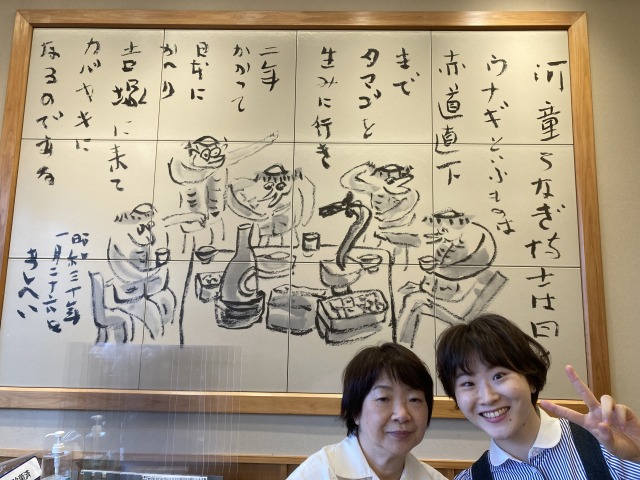 河童うなぎ博士は曰
ウナギといふものは
赤道直下
まで
タマゴを
生みに行き
二年
かかって
日本に
かへり
吉塚に来て
カバヤキに
なるのである
昭和三十年
一月二十六日
あしへい